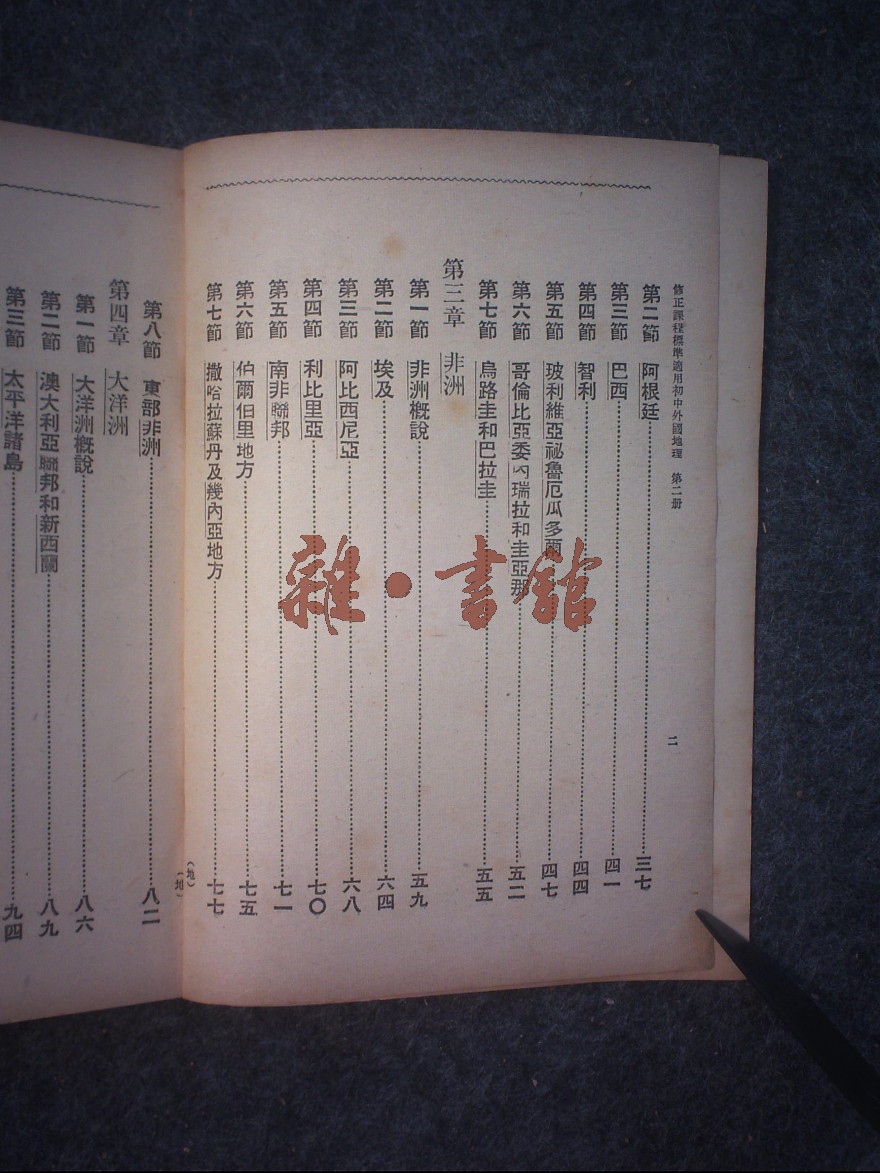 修正課程標準適用初中外國地理　第二册
二
第二節　阿根廷…………三七
第三節　巴西…………四一
第四節　智利…………四四
第五節　玻利維亞祕魯厄瓜多爾…………四七
第六節　哥倫比亞委內瑞拉和圭亞那…………五二
第七節　烏路圭和巴拉圭…………五五
第三章　非洲
第一節　非洲概說…………五九
第二節　埃及…………六四
第三節　阿比西尼亞…………六八
第四節　利比里亞…………七〇
第五節　南非聯邦…………七一
第六節　伯爾伯里地方…………七五
第七節　撒哈拉蘇丹及幾內亞地方…………七七
（地）
第八節　東部非洲…………八二
第四章　大洋洲
第一節　大洋洲概說…………八六
第二節　澳大利亞聯邦和新西蘭…………八九
第三節　太平洋諸島…………九四
雜·書館